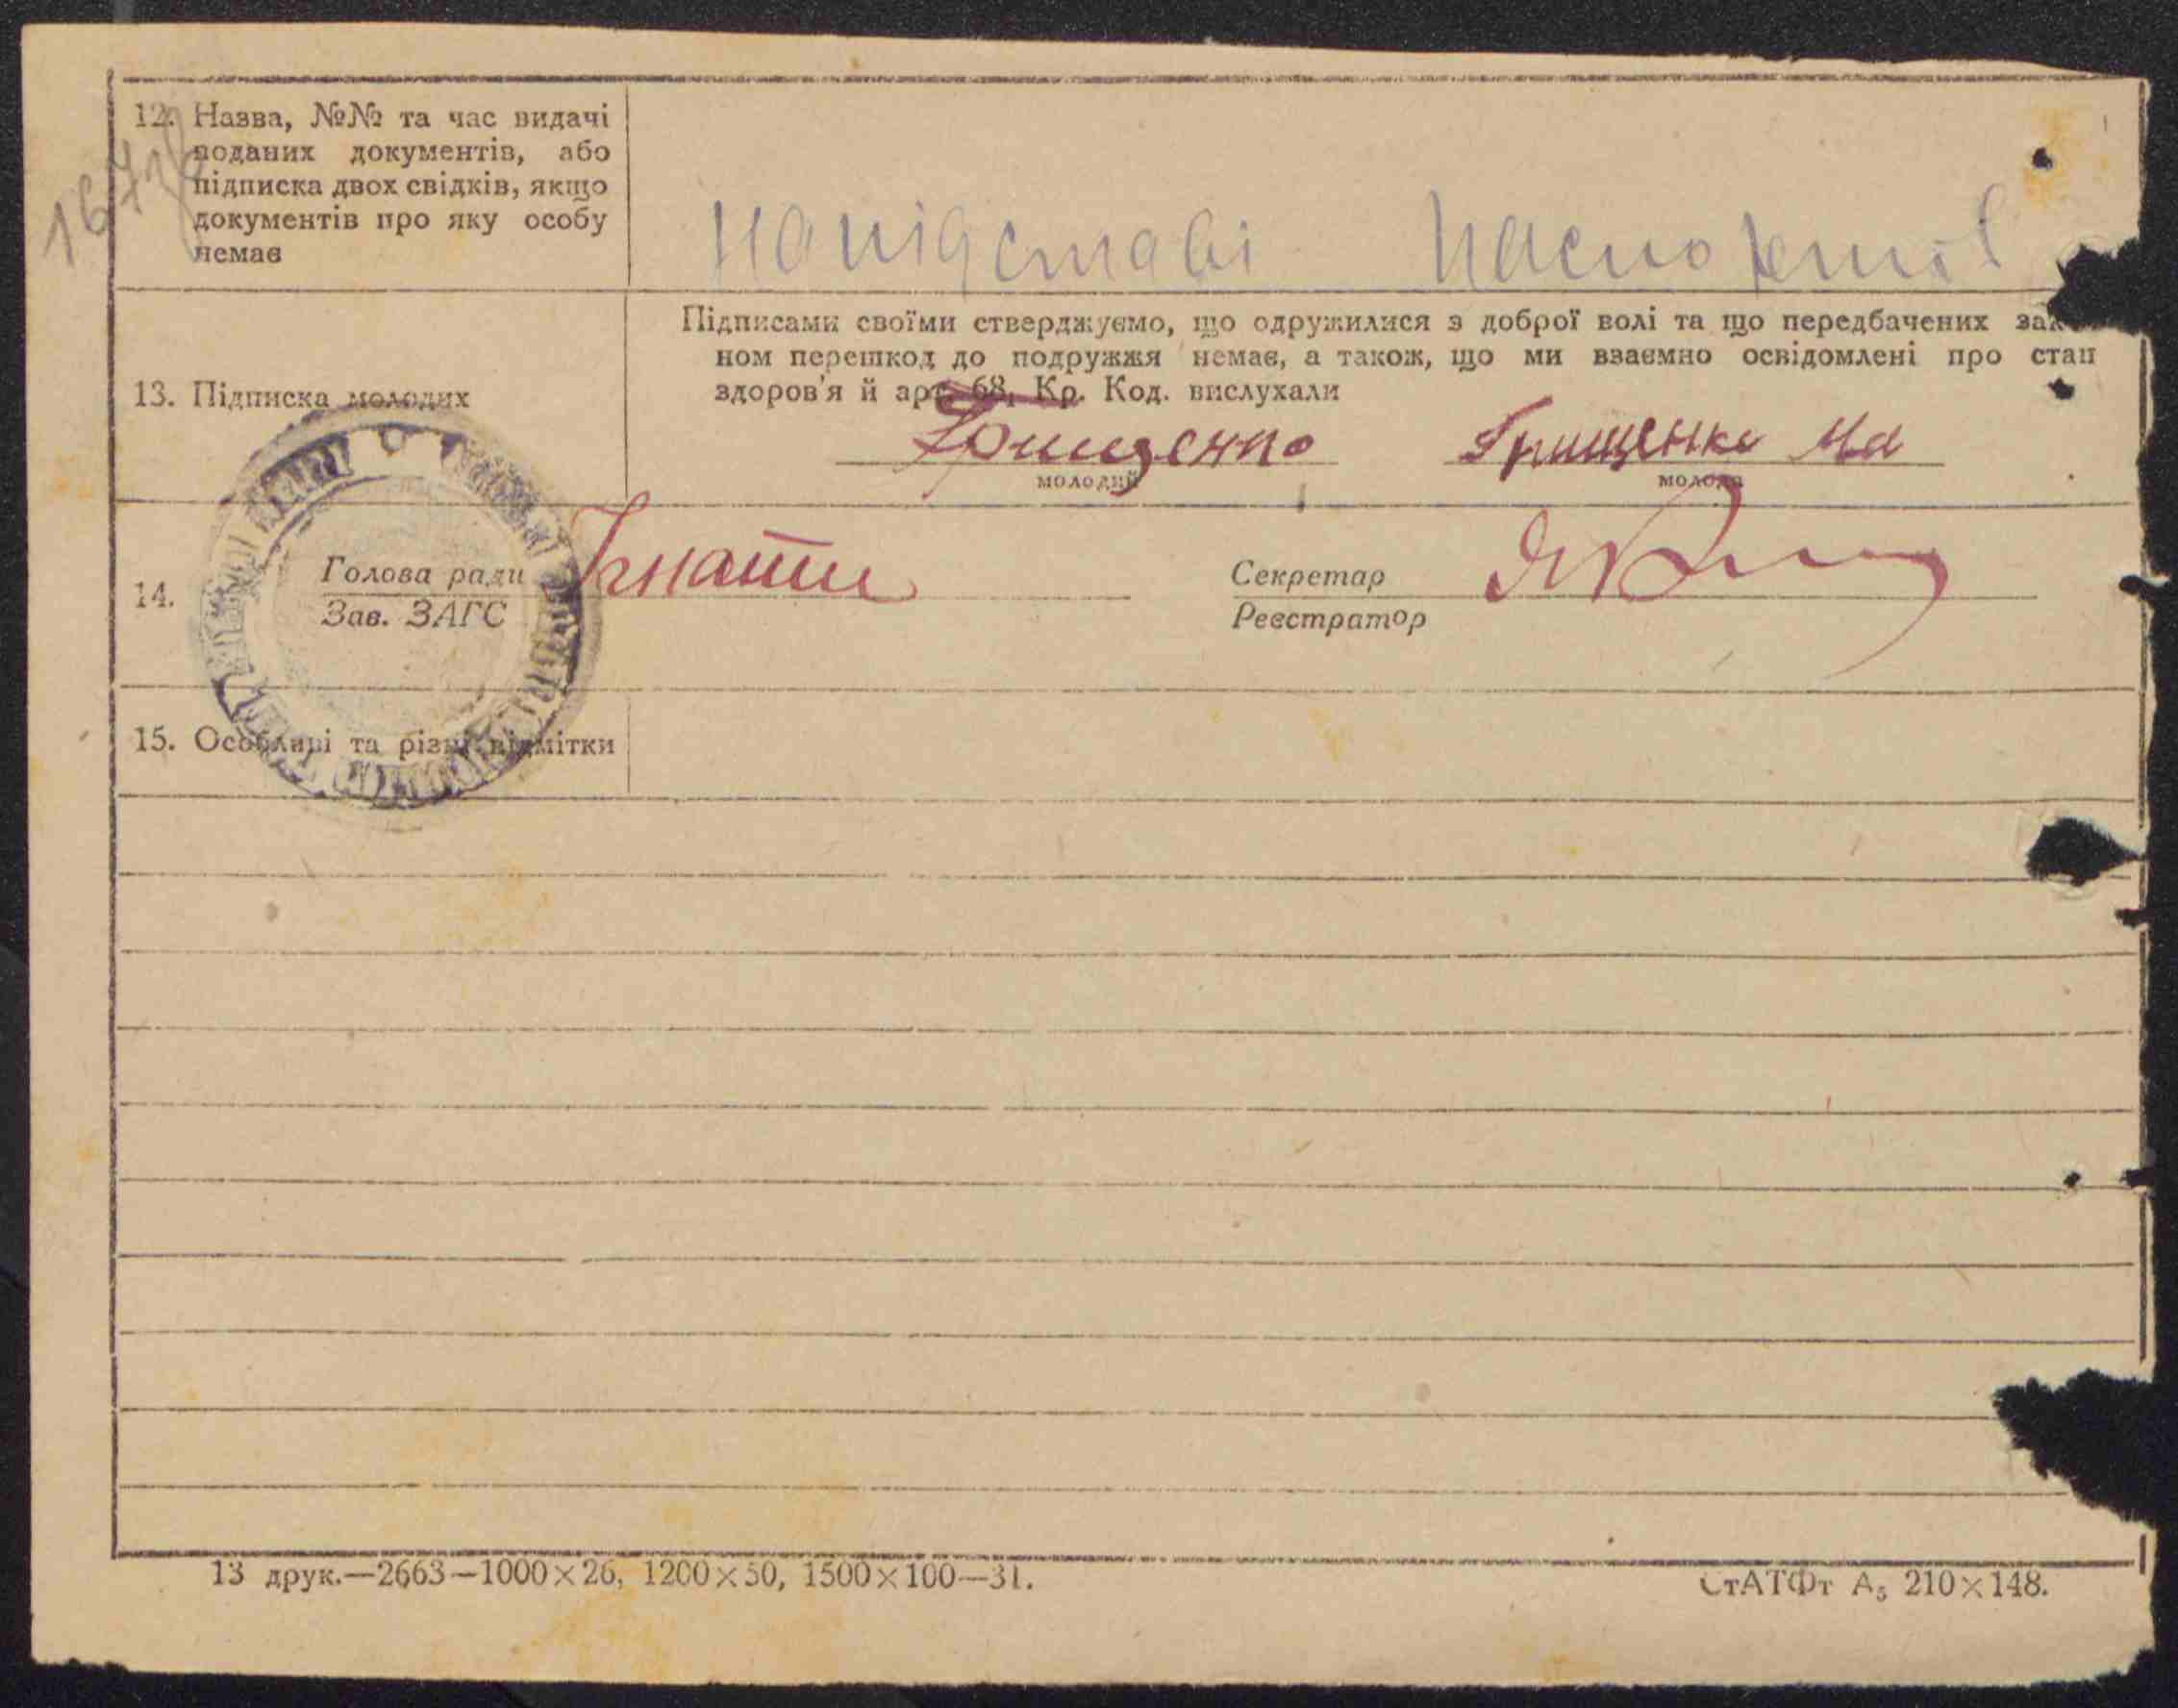 12. Назва, №№ та час видачі
поданих документів, або
підписка двох свідків, якщо
документів про яку особу
немає
на підставі паспортів
13. Підписка молодих
Підписами своїми стверджуємо, що одружилися з доброї волі та що передбачених зак
ном перешкод до подружжя немає, а також, що ми взаємно освідомлені про стан
здоров'я й арт. 68, Кр. Код. вислухали
Грищенко Грищенко Ма
молодий молода
14. Голова ради
Зав. ЗАГС
Секретар
Реєстратор
15. Особливі та різні відмітки
13 друк.—2663—1000×26, 1200×50, 1500×100—31.
СтАТФт А5 210×148.